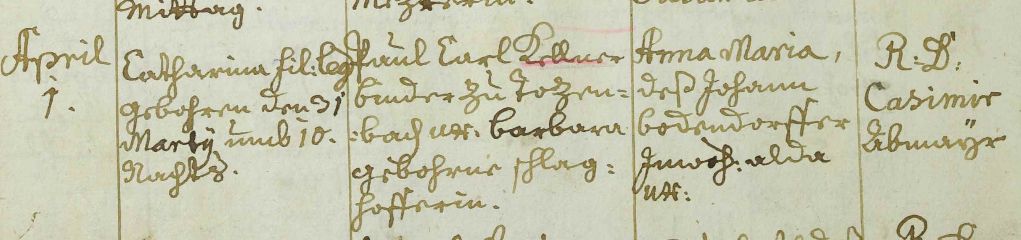 Mittag.
April
1.
Catharina fil: leg
gebohren den 31
Martÿ umb 10.
Nachts.
Paul Carl Kellner
binder zu Tozen=
bach ux: barbara
gebohrne schlag=
hofferin.
Anna Maria,
deß Johann
bodendorffer
Inwoh: alda
ux:
R: D:
Casimir
Abmayr